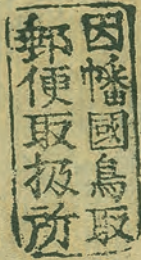 因幡國鳥取
郵便取扱所